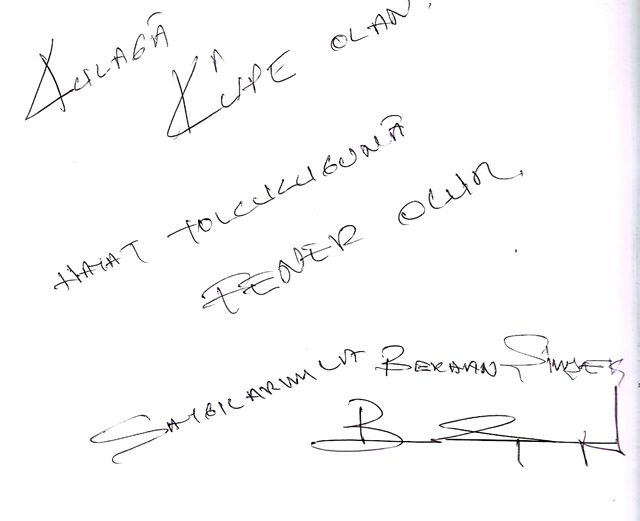 KULAĞA
KÜPE OLAN,
HAYAT YOLCULUĞUNA
FENER OLUR.
SAYGILARIMLA BERHAN ŞİMŞEK